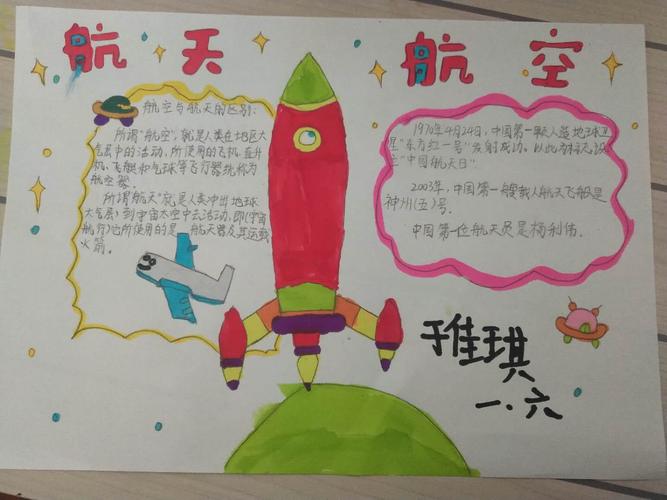 航天 航空
航空与航天的区别：
所谓"航空"，就是人类在地球大
气层中的活动，所使用的飞机、直升
机、飞艇和气球等飞行器统称为
航空器。
所谓航天"就是人类冲出地球
大气层，到宇宙太空中去活动，即(宇宙
航行)它所使用的是 航天器及其运载
火箭。
1970年4月24日，中国第一颗人造地球卫
星"东方红一号"发射成功，以此为
空"中国航天日"
2003年，中国第一艘载人航天飞船是
神州(五)号。
中国第一位航天员是杨利伟。
于佳琪
一.六